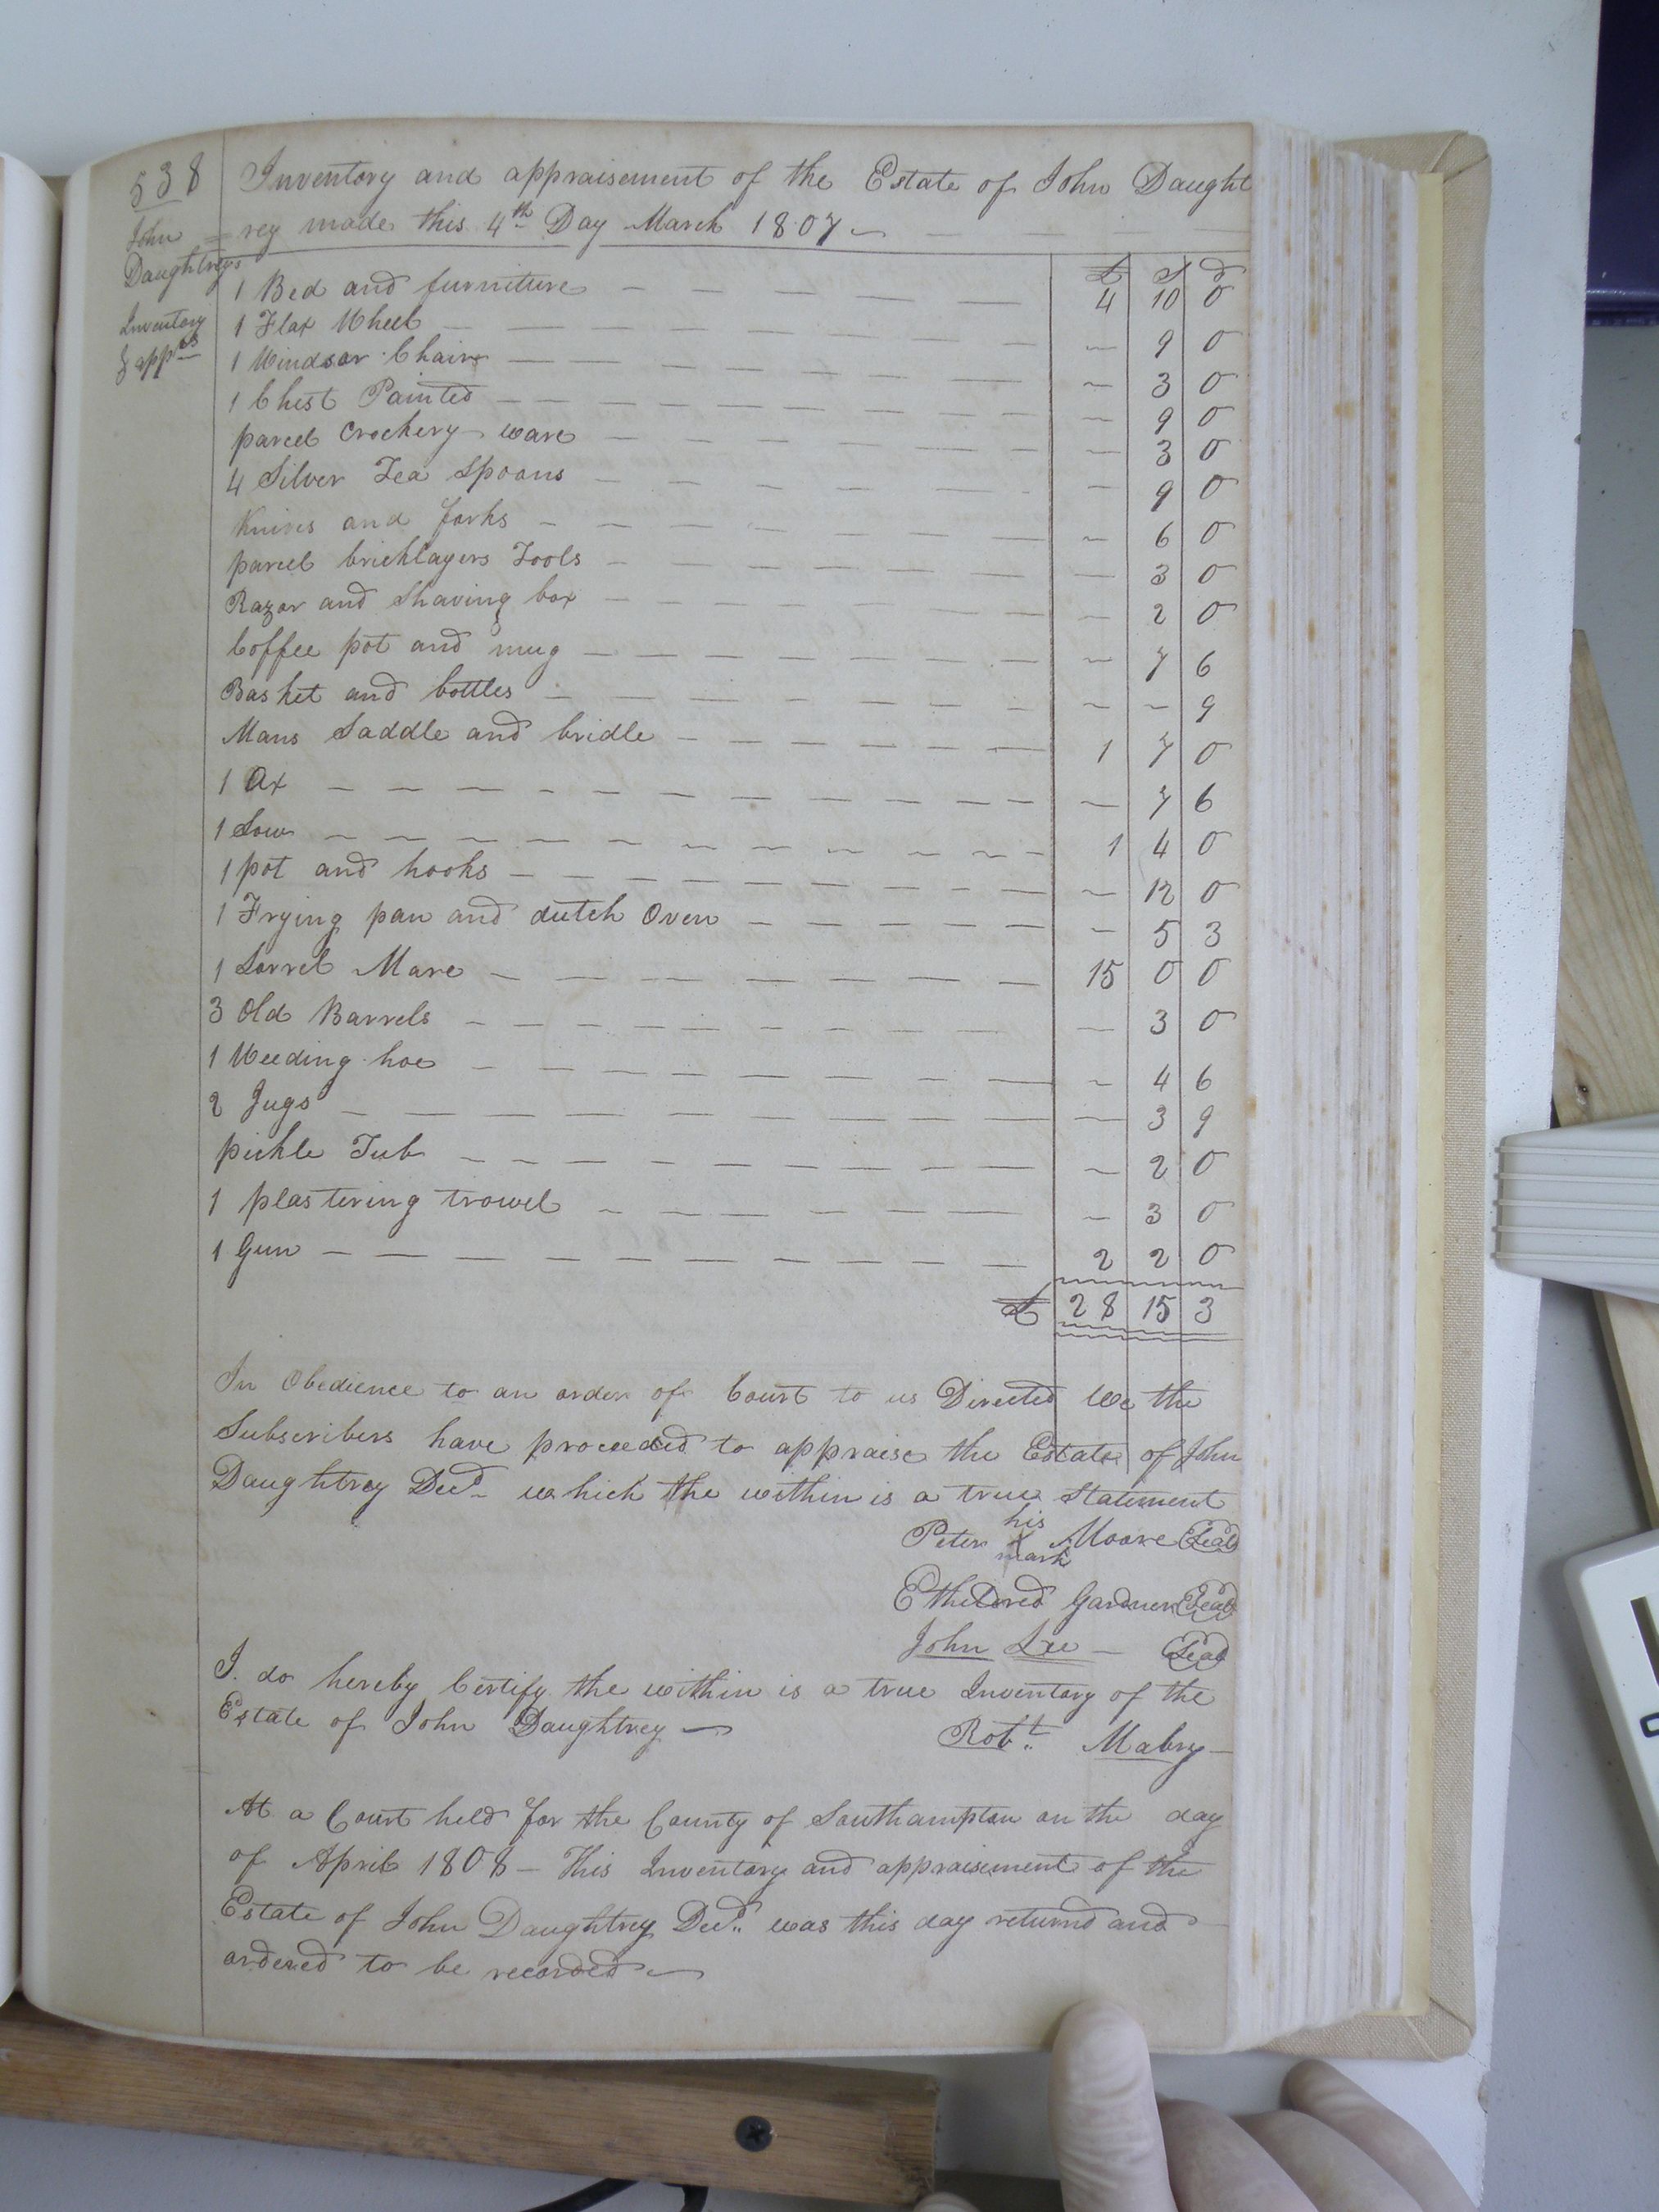 538
Inventory and appraisement of the Estate of John Daught
=rey made this 4th Day March 1807
John
Daughtrey's
Inventory
& appmt
£ S d
1 Bed and furniture 4 10 0
1 Flax Wheel — 9 0
1 Windsor Chair — 3 0
1 Chest Painted — 9 0
parcel Crockery ware — 3 0
4 Silver Tea Spoons — 9 0
Knives and forks — 6 0
parcel bricklayers Tools — 3 0
Razor and Shaving box — 2 0
Coffee pot and mug — 7 6
Basket and bottles — — 9
Mans Saddle and bridle 1 7 0
1 Ax — 7 6
1 Sow 1 4 0
1 pot and hooks — 12 0
1 Frying pan and dutch Oven — 5 3
1 Sorrel Mare 15 0 0
3 Old Barrels — 3 0
1 Weeding hoe — 4 6
2 Jugs — 3 9
pickle Tub — 2 0
1 plastering trowel — 3 0
1 Gun 2 2 0
£ 28 15 3
In Obedience to an order of Court to us Directed We the
Subscribers have proceeded to appraise the Estate of John
Daughtrey Decd which the within is a true Statement
his
Peter X Moore Seal
mark
Etheldred Gardner Seal
John Lee — Seal
I do hereby Certify the within is a true Inventory of the
Estate of John Daughtrey —
Robt. Mabry —
At a Court held for the County of Southampton on the day
of April 1808 — This Inventory and appraisement of the
Estate of John Daughtrey Decd. was this day returnd and
ordered to be recorded —